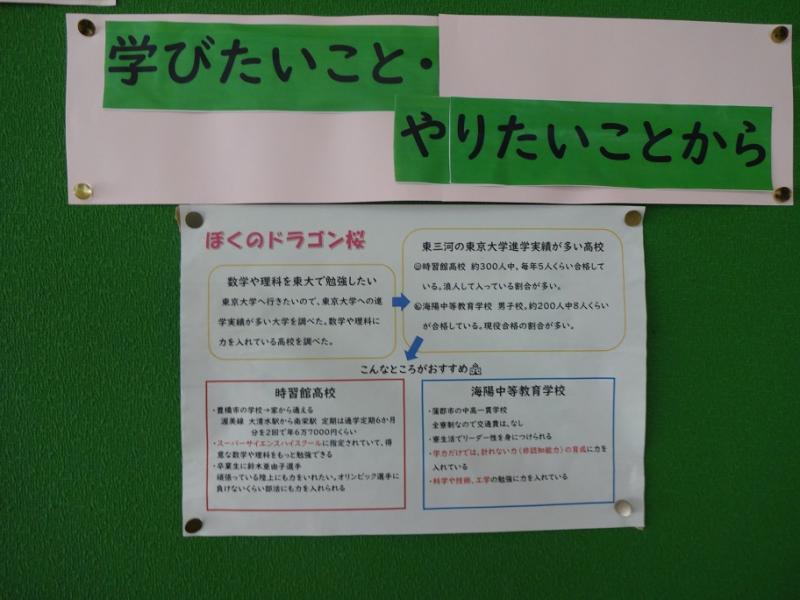 学びたいこと・
やりたいことから
ぼくのドラゴン桜
数学や理科を東大で勉強したい
東京大学へ行きたいので、東京大学への進
学実績が多い大学を調べた。数学や理科に
力を入れている高校を調べた。
東三河の東京大学進学実績が多い高校
◎時習館高校 約300人中、毎年5人くらい合格して
いる。浪人して入っている割合が多い。
海陽中等教育学校 男子校。約200人中8人くらい
が合格している。現役合格の割合が多い。
こんなところがおすすめ
時習館高校
・豊橋市の学校→家から通える
渥美線 大清水駅から南栄駅 定期は通学定期6か月
分を2回で年6万7000円くらい
・スーパーサイエンスハイスクールに指定されていて、得
意な数学や理科をもっと勉強できる
・卒業生に鈴木亜由子選手
頑張っている陸上にも力をいれたい。オリンピック選手に
負けないくらい部活にも力を入れられる
海陽中等教育学校
・蒲郡市の中高一貫学校
全寮制なので交通費は、なし
・寮生活でリーダー性を身につけられる
・学力だけでは、計れない力(非認知能力)の育成に力を
入れている
・科学や技術、工学の勉強に力を入れている